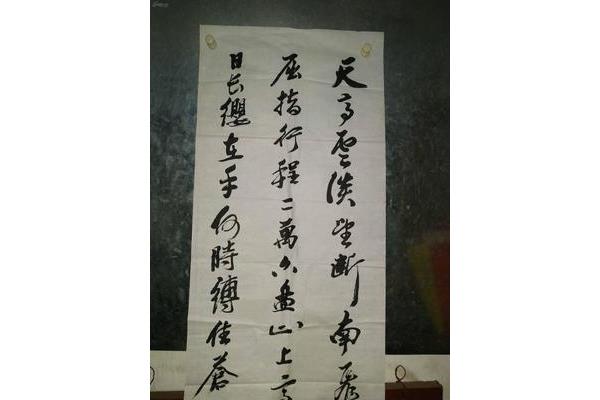 天高雲淡望斷南
屈指行程二萬六盘山上高
日長纓在手何時縛住蒼